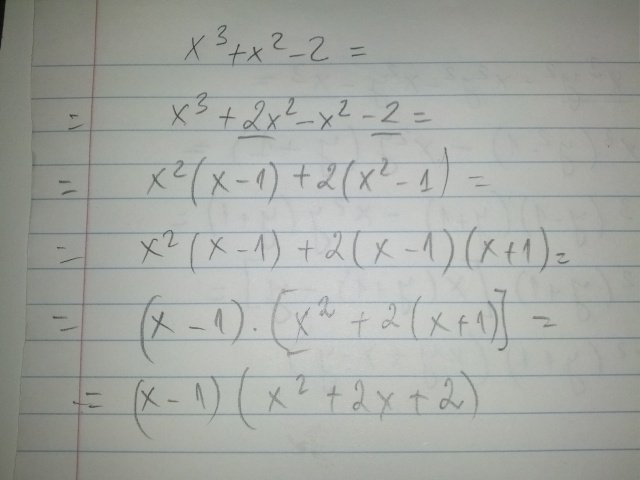 x³+x²-2=
= x³+2x²-x²-2=
= x²(x-1)+2(x²-1)=
= x²(x-1)+2(x-1)(x+1)=
= (x-1)·[x²+2(x+1)]=
= (x-1)(x²+2x+2)